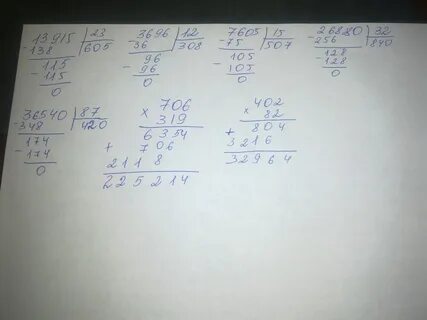 13915 | 23
-138 | 605
115
-115
0
3696 | 12
-36 | 308
96
-96
0
7605 | 15
-75 | 507
105
-105
0
-26880 | 32
256 | 840
128
-128
0
36540 | 87
-348 | 420
174
-174
0
706
× 319
6354
+ 706
2118
225214
402
× 82
804
+ 3216
32964